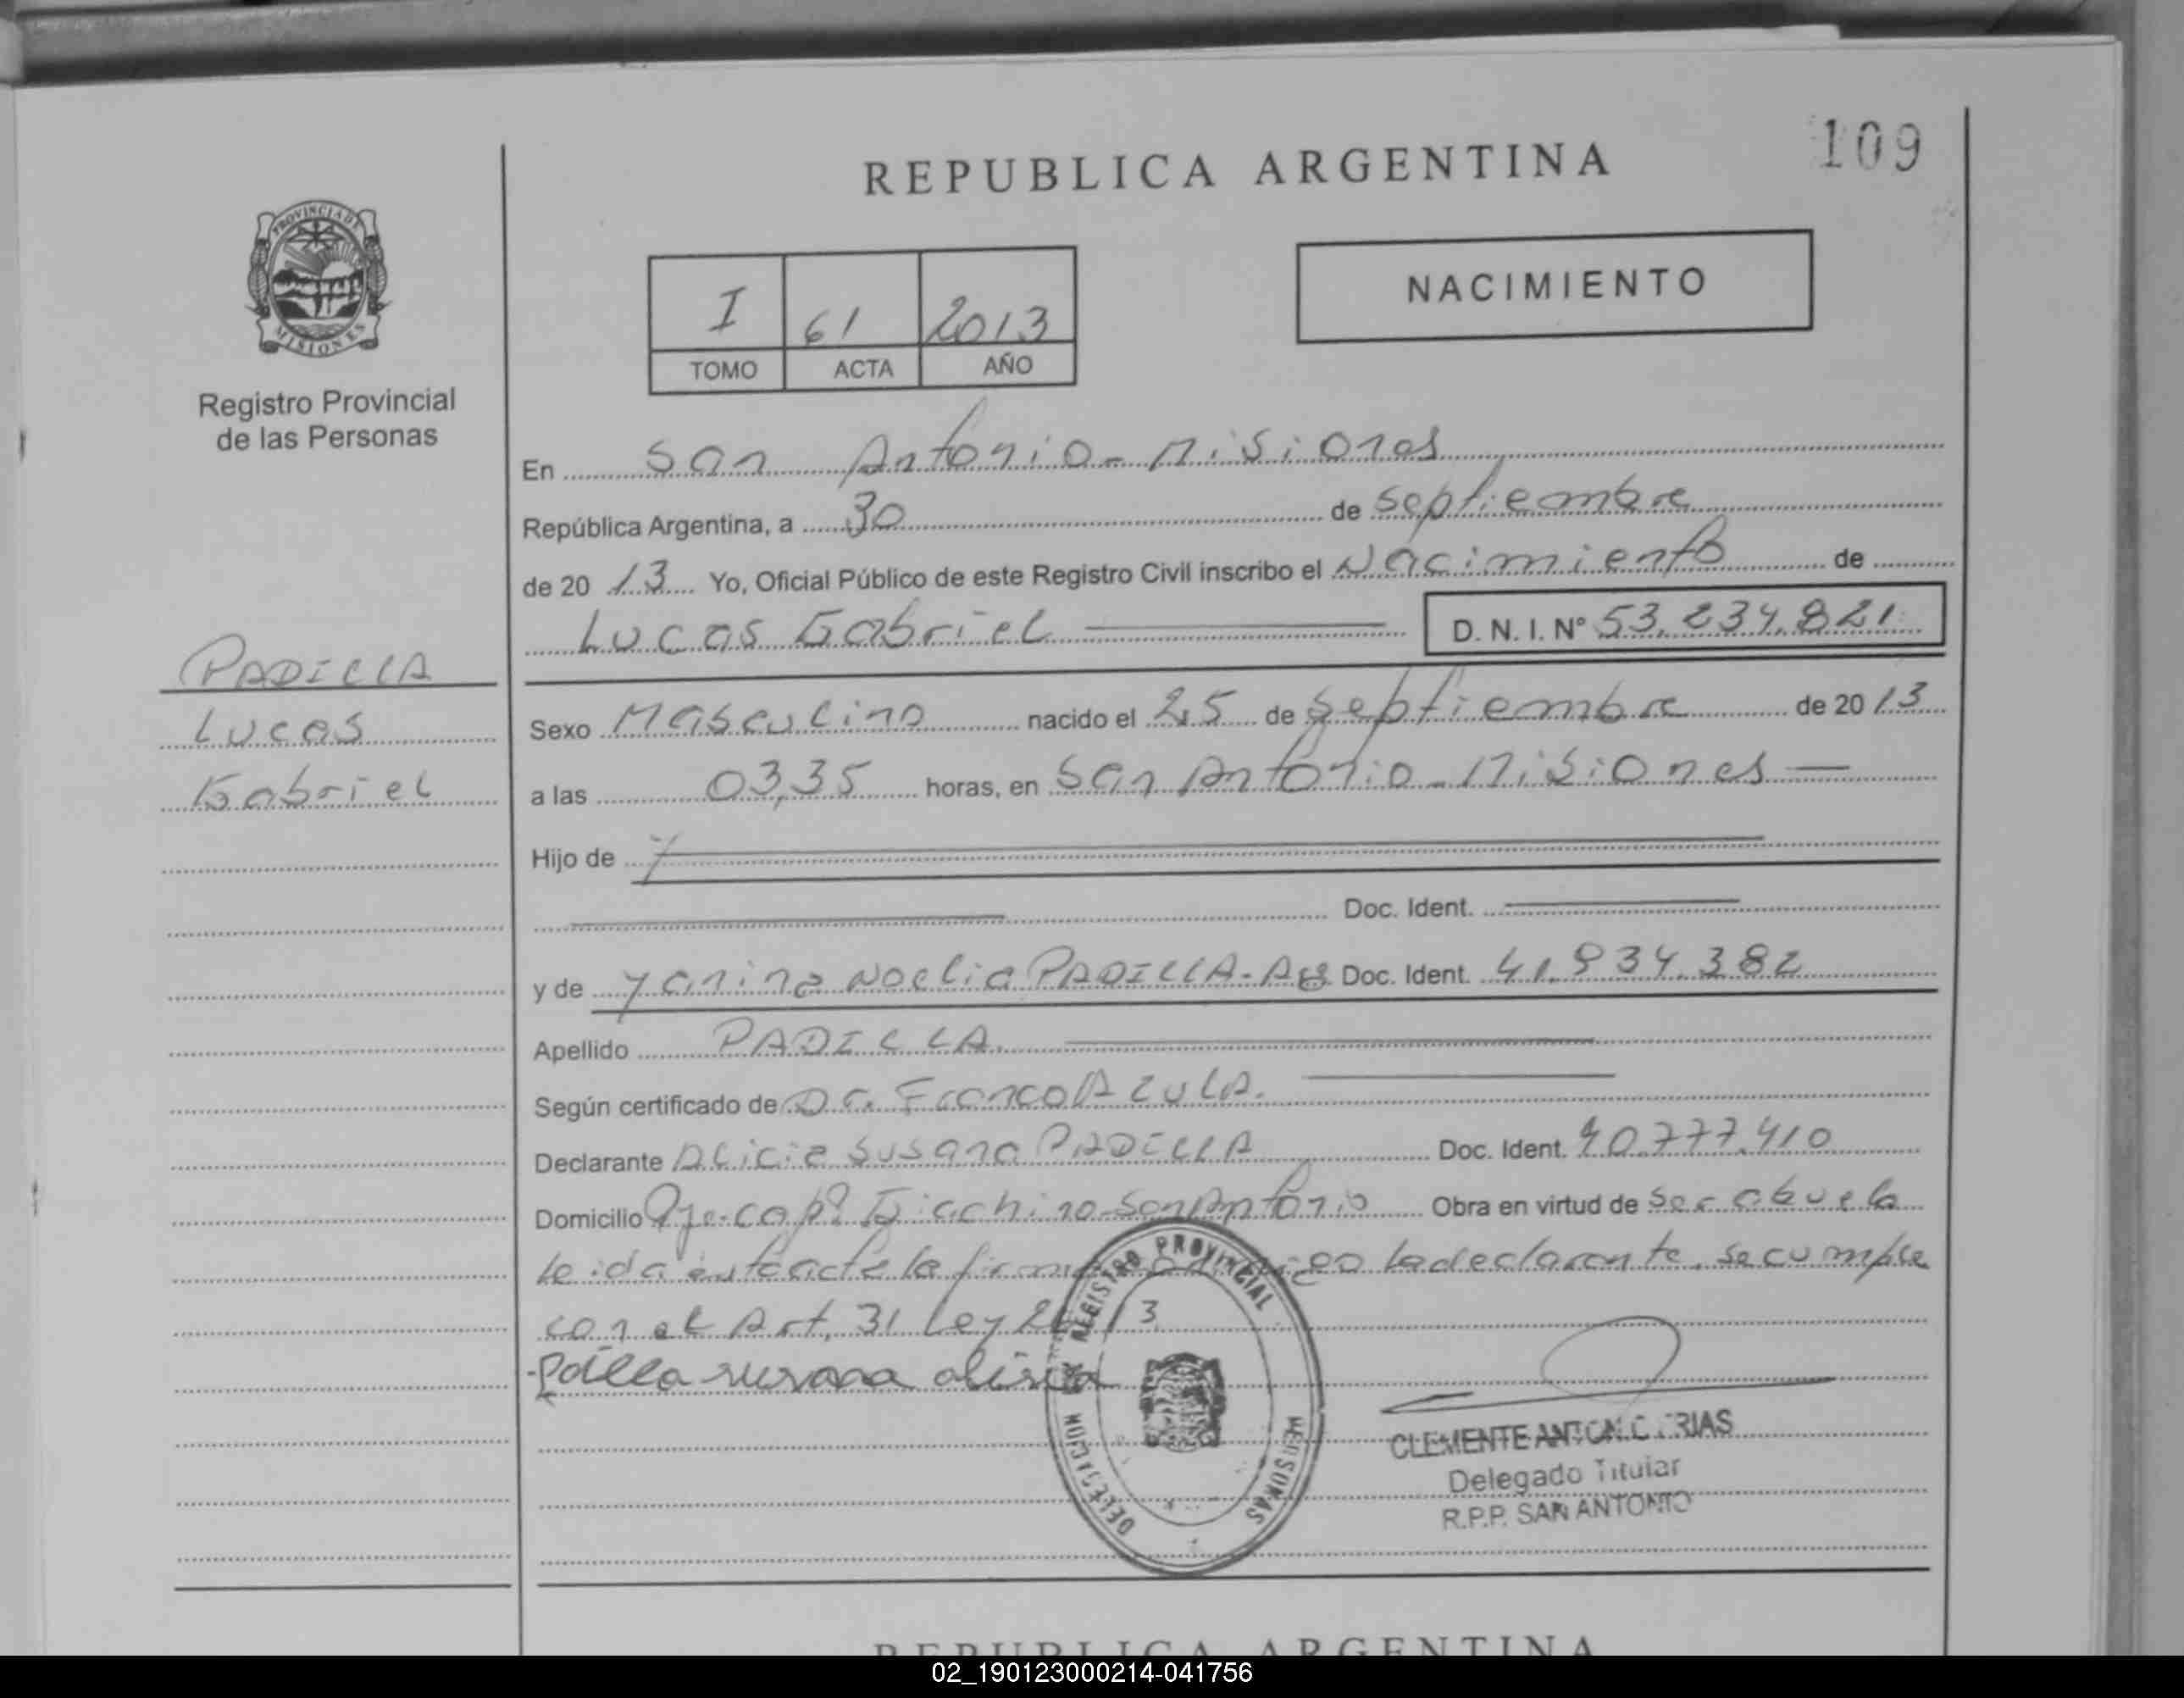 109
REPUBLICA ARGENTINA
PROVINCIA DE
MISIONES
Registro Provincial
de las Personas
I 61 2013
TOMO ACTA AÑO
NACIMIENTO
En San Antonio - Misiones
República Argentina, a 30 de septiembre
de 20 13 Yo, Oficial Público de este Registro Civil inscribo el Nacimiento de
Lucas Gabriel D. N. I. Nº 53.234.821
PADILLA
Lucas
Gabriel
Sexo Masculino nacido el 25 de septiembre de 20 13
a las 03,35 horas, en San Antonio - Misiones
Hijo de
Doc. Ident.
y de Yanina Noelia PADILLA - Doc. Ident. 41.934.382
Apellido PADILLA.
Según certificado de Dr. Franco AZULA.
Declarante Alicia Susana PADILLA Doc. Ident. 40.777.410
Domicilio San Antonio Obra en virtud de ser abuela
leida esta acta la firma la declarante, se cumple
con el Art. 31 Ley
Padilla susana alisia
REGISTRO PROVINCIAL
PERSONAS
DELEGACION
CLEMENTE ANTONIO
Delegado Titular
R.P.P. SAN ANTONIO
REPUBLICA ARGENTINA
02_190123000214-041756